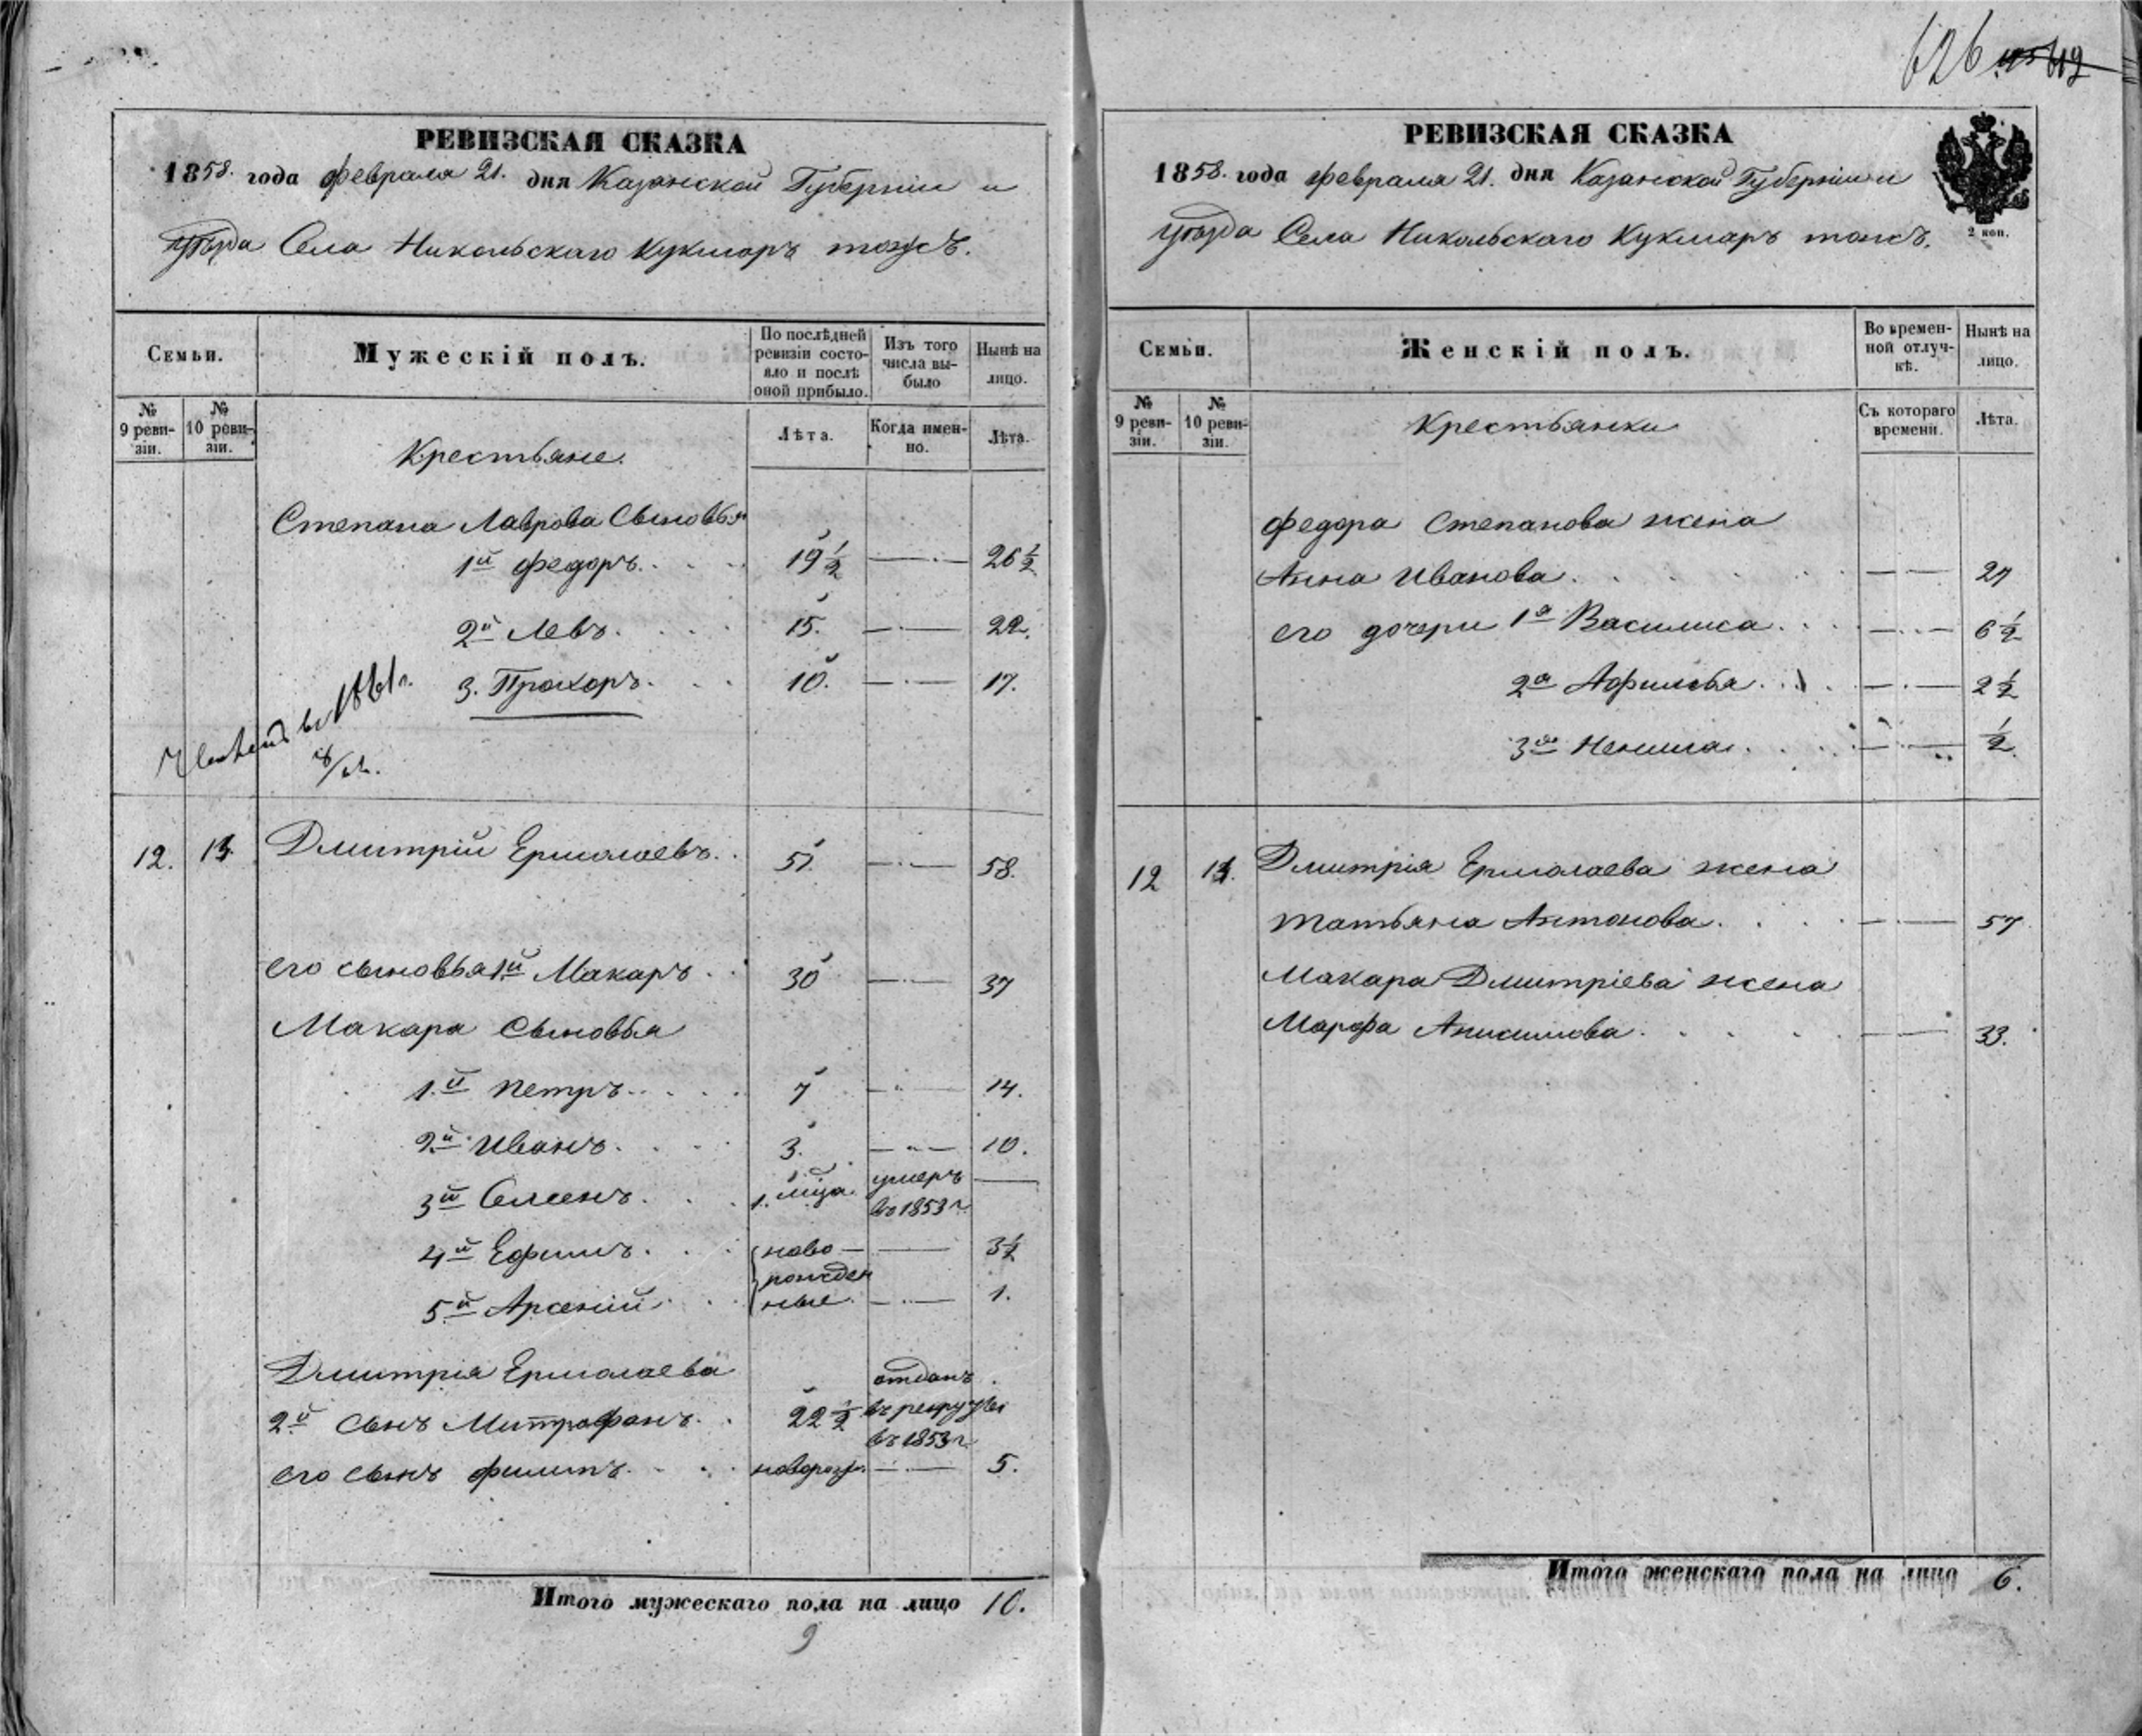 626
РЕВИЗСКАЯ СКАЗКА
1858. года февраля 21. дня Казанской Губерніи и
уѣзда Села Никольскаго Кукморъ тожъ.
Семьи.
Мужескій полъ.
По послѣдней ревизіи состояло и послѣ оной прибыло.
Изъ того числа выбыло
Нынѣ на лицо.
№ 9 ревизіи.
№ 10 ревизіи.
Крестьяне.
Лѣта.
Когда именно.
Лѣта.
Степана Лаврова Сыновья
1й Федоръ. 19 1/2 26 1/2
2й Левъ. 15. 22.
3. Прохоръ. 10. 17.
въ 1861 г.
12. 13. Дмитрій Ермолаевъ. 51. 58.
его сыновья 1й Макаръ 30 37
Макара Сыновья
1.й Петръ. 7 14.
2.й Иванъ. 3. 10.
3й Семенъ. 1. мца. умеръ въ 1853 г.
4й Ефимъ. ново- 3 1/2
рожден
5й Арсеній. ные 1.
Дмитрія Ермолаева отданъ
2.й сынъ Митрофанъ. 22 1/2 въ рекруты
въ 1853 г.
его сынъ Филипъ. новорож. 5.
Итого мужескаго пола на лицо 10.
9
РЕВИЗСКАЯ СКАЗКА
1858. года февраля 21. дня Казанской Губерніи и
уѣзда Села Никольскаго Кукморъ тожъ.
2 коп.
Семьи.
Женскій полъ.
Во временной отлучкѣ.
Нынѣ на лицо.
№ 9 ревизіи.
№ 10 ревизіи.
Крестьянки
Съ котораго времени.
Лѣта.
Федора Степанова жена
Анна Иванова. 27
его дочери 1я Василиса. 6 1/2
2я Афимья. 2 1/2
3я 1/2
12 13. Дмитрія Ермолаева жена
Татьяна Антонова. 57
Макара Дмитріева жена
Марфа Анисимова. 33.
Итого женскаго пола на лицо 6.